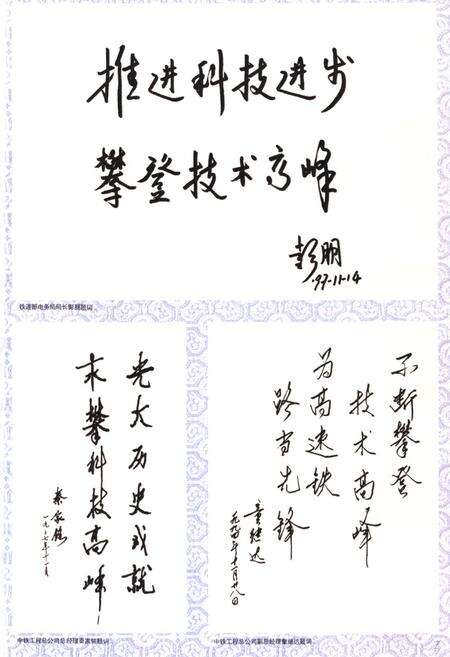 推进科技进步
攀登技术高峰
彭朋
.97.11.14
铁道部电务局局长彭朋题词
光大历史成就
求攀科技高峰
秦家铭
一九九七年十一月
中铁工程总公司总经理秦家铭题词
不断攀登
技术高峰
为高速铁
路当先锋
童继达
中铁工程总公司副总经理童继达题词